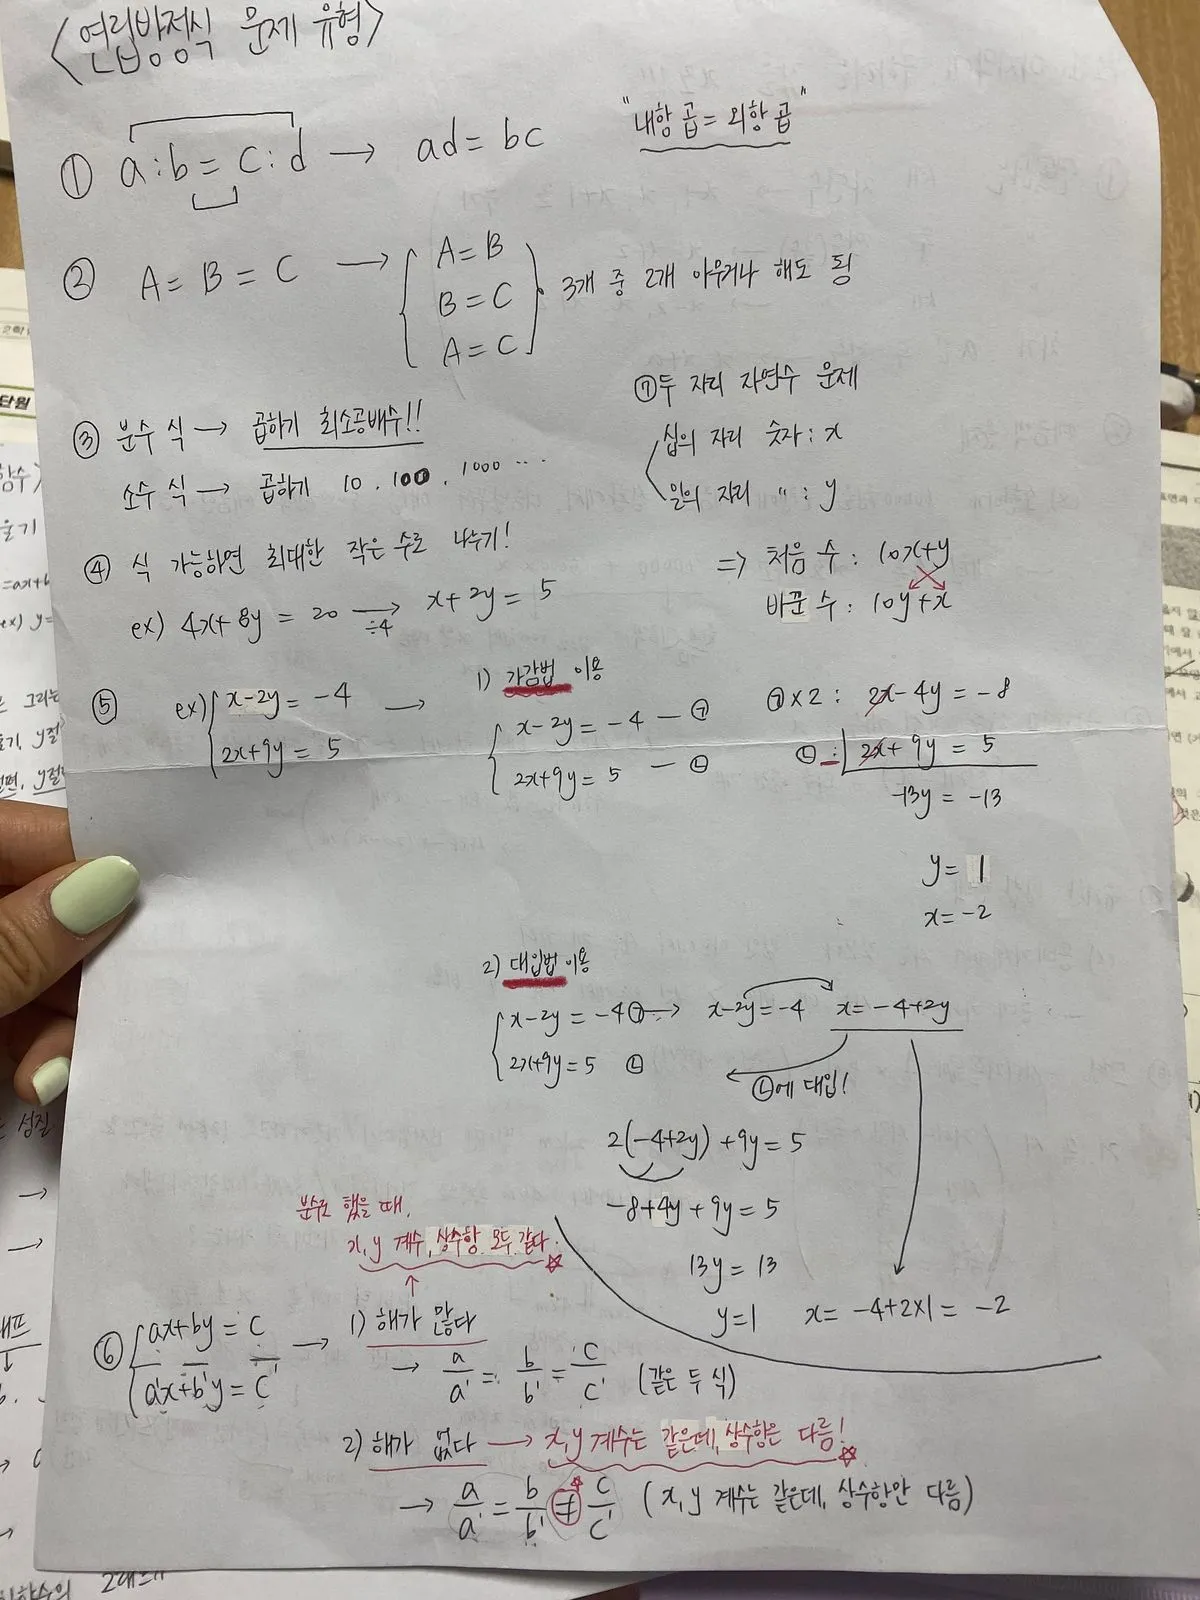 <연립방정식 문제 유형>
① a:b = c:d → ad = bc
"내항 곱 = 외항 곱"
② A = B = C → { A = B
B = C
A = C } 3개 중 2개 아무거나 해도 됨
③ 분수 식 → 곱하기 최소공배수!!
소수 식 → 곱하기 10, 100, 1000 ...
④ 식 가능하면 최대한 작은 수로 나누기!
ex) 4x+8y = 20 →÷4 x+2y = 5
⑦ 두 자리 자연수 문제
십의 자리 숫자 : x
일의 자리 〃 : y
⇒ 처음 수 : 10x+y
바꾼 수 : 10y+x
⑤ ex) { x-2y = -4 →
2x+9y = 5
1) 가감법 이용
{ x-2y = -4 - ㉠
2x+9y = 5 - ㉡
㉠×2 : 2x-4y = -8
㉡ - : 2x+9y = 5
-13y = -13
y = 1
x = -2
2) 대입법 이용
{ x-2y = -4 ㉠ → x-2y = -4 x = -4+2y
2x+9y = 5 ㉡
㉡에 대입!
2(-4+2y) + 9y = 5
-8+4y + 9y = 5
13y = 13
y=1 x = -4+2×1 = -2
분수로 했을 때,
x, y 계수, 상수항 모두 같다.☆
↑
⑥ { ax+by = c →
a'x+b'y = c'
1) 해가 많다
→ a/a' = b/b' = c/c' (같은 두 식)
2) 해가 없다 → x, y 계수는 같은데, 상수항은 다름!☆
→ a/a' = b/b' ≠ c/c' (x, y 계수는 같은데, 상수항만 다름)
단원
함수>
=ax+b
ex) y=
그리는
기, y절
절편, y절
성질